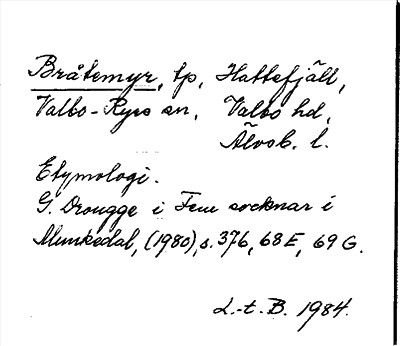 Bråtemyr, tp, Hattefjäll,
Valbo-Ryrs sn, Valbo hd,
Älvsb. l.
Etymologi.
G. Drougge i Fem socknar i
Munkedal, (1980), s. 376, 68E, 69G.
L.-t. B. 1984.